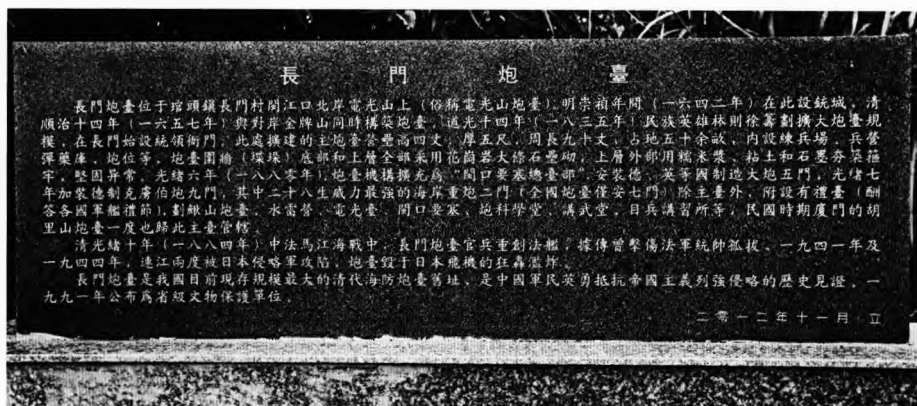 長門炮臺
長門炮臺位于琯頭鎮長門村閩江口北岸電光山上（俗稱電光山炮臺）。明崇禎年間（一六四二年）在此設銃城，清
順治十四年（一六五七年）與對岸金牌山同時構築炮臺，道光十四年（一八三五年）民族英雄林則徐籌劃擴大炮臺規
模，在長門始設統領衙門，此處擴建的主炮臺營壘高四丈，厚五尺，周長九十丈，占地五十余畝，内設練兵場、兵營
彈藥庫、炮位等。炮臺圍墻（堞垛）底部和上層全部采用花崗岩大條石壘砌，上層外部用糯米漿、粘土和石墨夯築
牢，堅固异常。光緒六年（一八八零年），炮臺機構擴充爲“閩口要塞總臺部”，安裝德、英等國制造大炮五門，光緒七
年加裝德制克虜伯炮九門，其中二十八生威力最強的海岸重炮二門（全國炮臺僅安七門）除主臺外，附設有禮臺（酬
答各國軍艦禮節），劃鰍山炮臺、水雷營、電光臺、閩口要塞、炮科學堂、講武堂、目兵講習所等，民國時期廈門的胡
里山炮臺一度也歸此主臺管轄。
清光緒十年（一八八四年）中法馬江海戰中，長門炮臺官兵重創法艦，據傳曾擊傷法軍統帥孤拔。一九四一年及
一九四四年，連江兩度被日本侵略軍攻陷，炮臺毀于日本飛機的狂轟濫炸。
長門炮臺是我國目前現存規模最大的清代海防炮臺舊址，是中國軍民英勇抵抗帝國主義列強侵略的歷史見證，一
九九一年公布爲省級文物保護單位。
二零一二年十一月 立